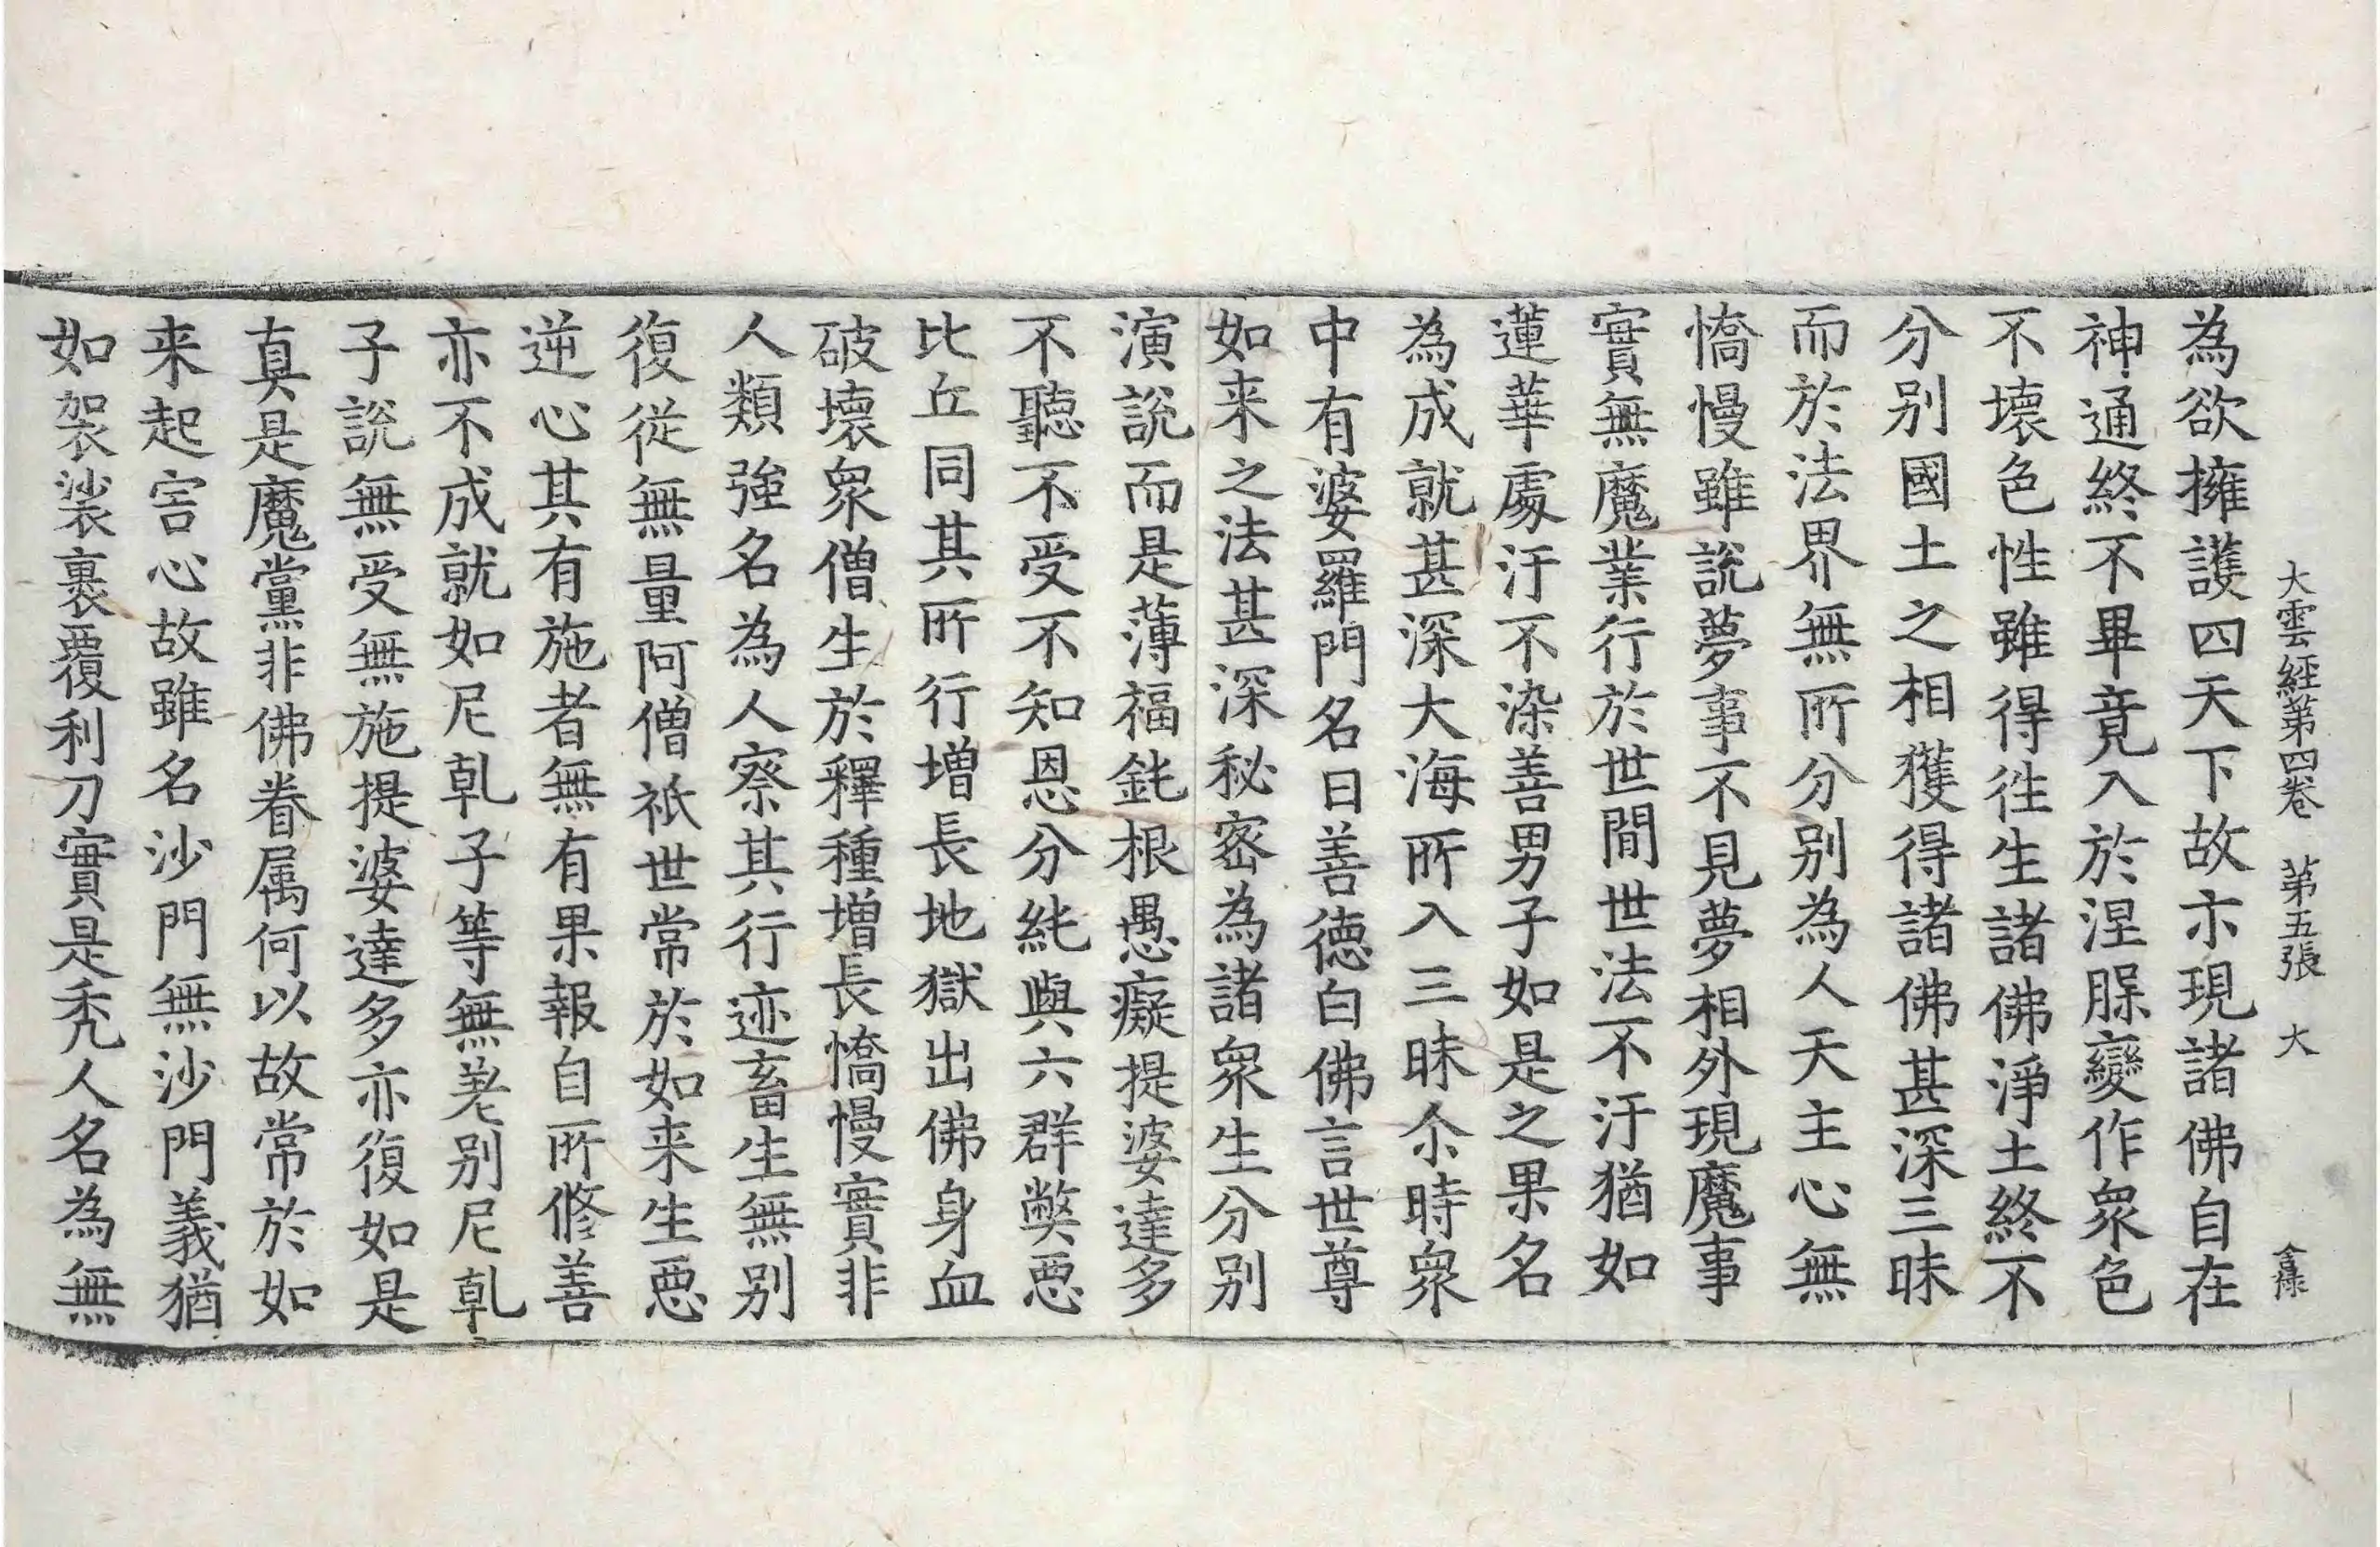 大雲經第四卷　第五張　大
為欲擁護四天下故亦現諸佛自在
神通終不畢竟入於涅脲變作衆色
不壞色性雖得徃生諸佛淨土終不
分别國土之相獲得諸佛甚深三昧
而於法界無所分别為人天主心無
憍慢雖説夢事不見夢相外現魔事
實無魔業行於世間世法不汙猶如
蓮華處汙不染善男子如是之果名
為成就甚深大海所入三昧尒時衆
中有婆羅門名曰善德白佛言世尊
如来之法甚深秘密為諸衆生分别
演説而是薄福鈍根愚癡提婆達多
不聽不受不知恩分純與六群弊惡
比丘同其所行增長地獄出佛身血
破壞衆僧生於釋種增長憍慢實非
人類強名為人察其行迹畜生無别
復從無量阿僧祇世常於如来生惡
逆心其有施者無有果報自所修善
亦不成就如尼乹子等無差别尼乹
子説無受無施提婆達多亦復如是
真是魔黨非佛眷属何以故常於如
来起害心故雖名沙門無沙門義猶
如袈裟裹覆利刀實是秃人名為無